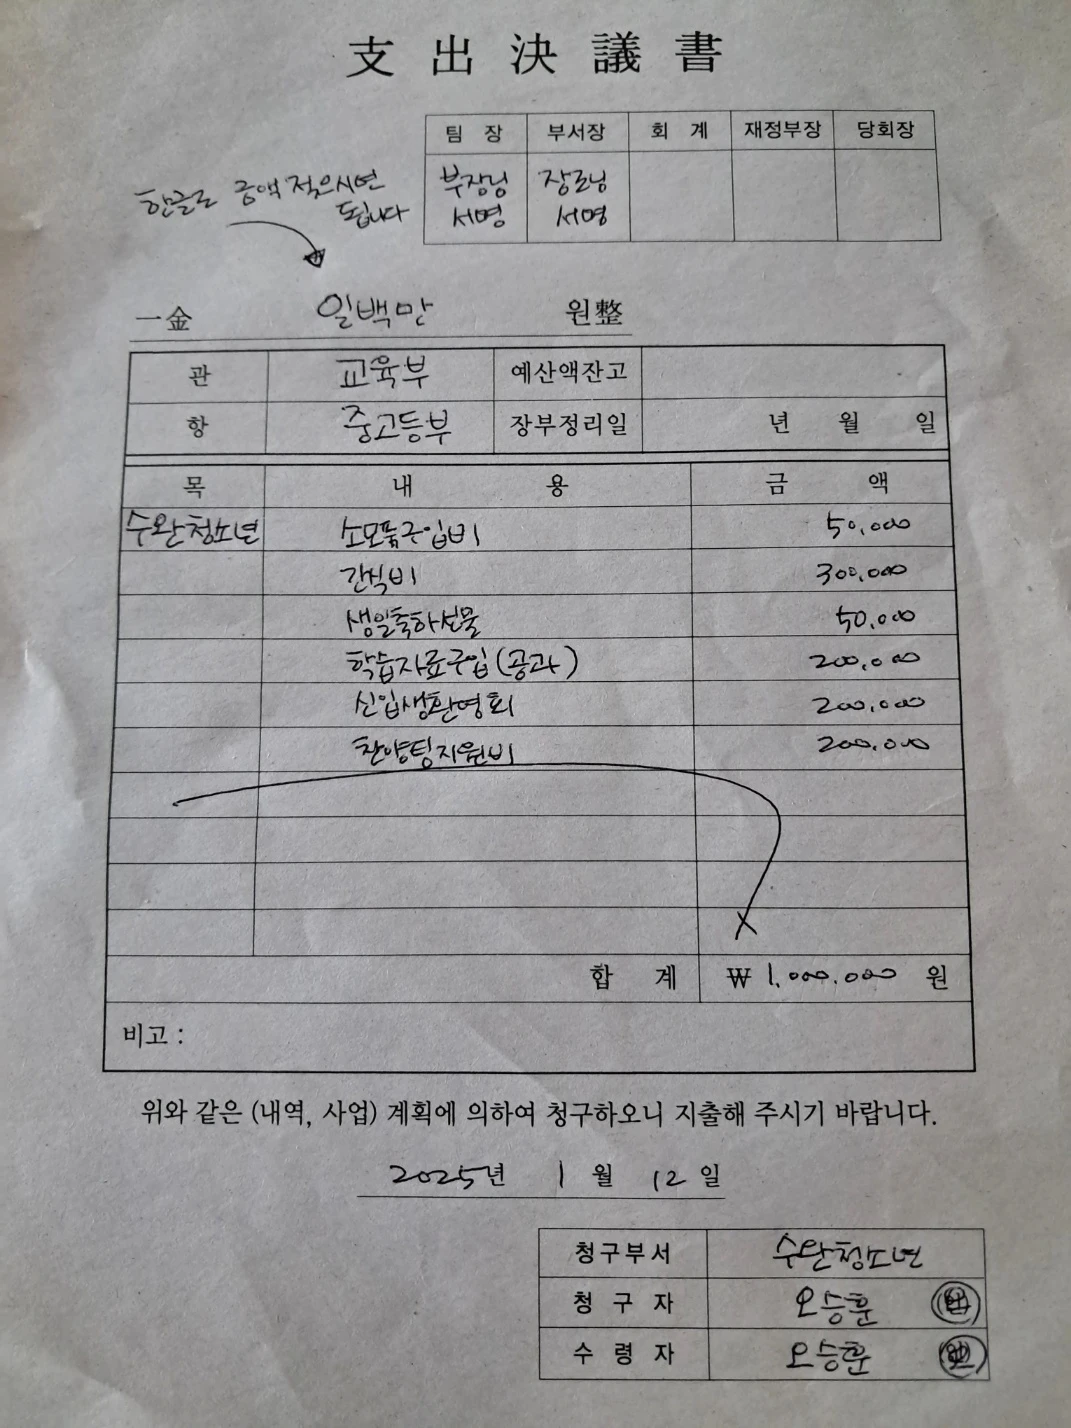 支出決議書
팀 장 부서장 회 계 재정부장 당회장
한글로 금액 적으시면
됩니다
부장님 장로님
서명 서명
一金 일백만 원整
관 교육부 예산액잔고
항 중고등부 장부정리일 년 월 일
목 내 용 금 액
수완청소년 소모품구입비 50,000
간식비 300,000
생일축하선물 50,000
학습자료구입(공과) 200,000
신입생환영회 200,000
찬양팀지원비 200,000
합 계 ₩ 1,000,000 원
비고 :
위와 같은 (내역, 사업) 계획에 의하여 청구하오니 지출해 주시기 바랍니다.
2025년 1 월 12 일
청구부서 수완청소년
청 구 자 오승훈
수 령 자 오승훈